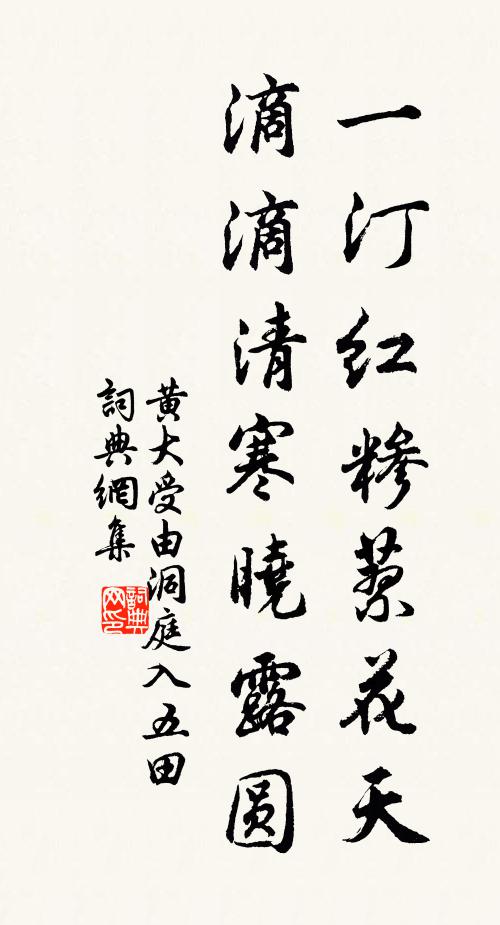 一汀红糁蓼花天
滴滴清寒曉露圆
黄大受由洞庭入五田
詞典網集
詞典网印